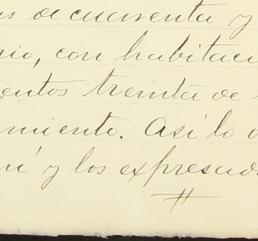 s de cuarenta y
rio, con habitaci
ientos treinta de
amiento. Así lo o
n y los expresado